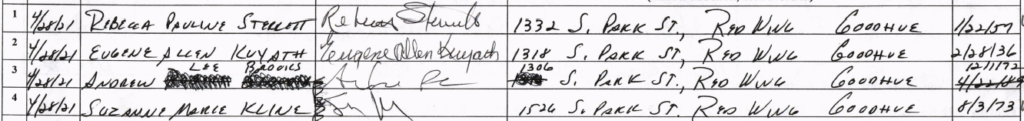 1 4/28/21 REBECCA PAULINE STELLOTT Rebecca 1332 S. PARK ST., RED WING GOODHUE 1/22/57
2 4/28/21 EUGENE ALLEN KUYATH Eugene Allen Kuyath 1318 S. PARK ST., RED WING GOODHUE 2/28/36
LEE BROOKS 1306 12/1/72
3 4/28/21 ANDREW S. PARK ST., RED WING GOODHUE
4 4/28/21 SUZANNE MARIE KLINE 1526 S. PARK ST., RED WING GOODHUE 8/3/73